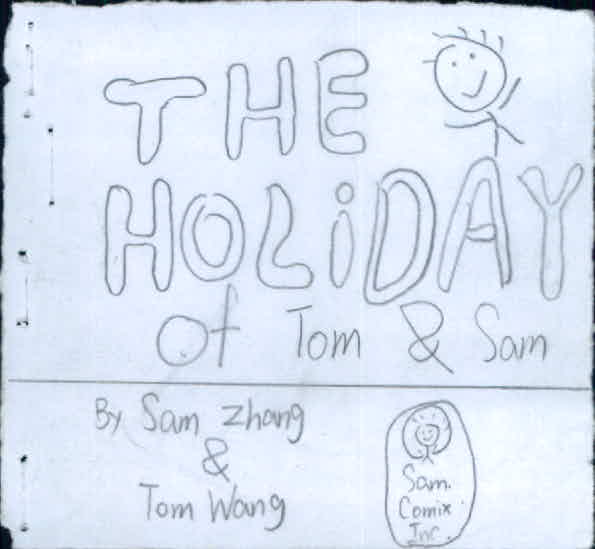 THE
HOLiDAY
of Tom & Sam
By Sam Zhang
&
Tom Wang
Sam.
Comix
Inc.